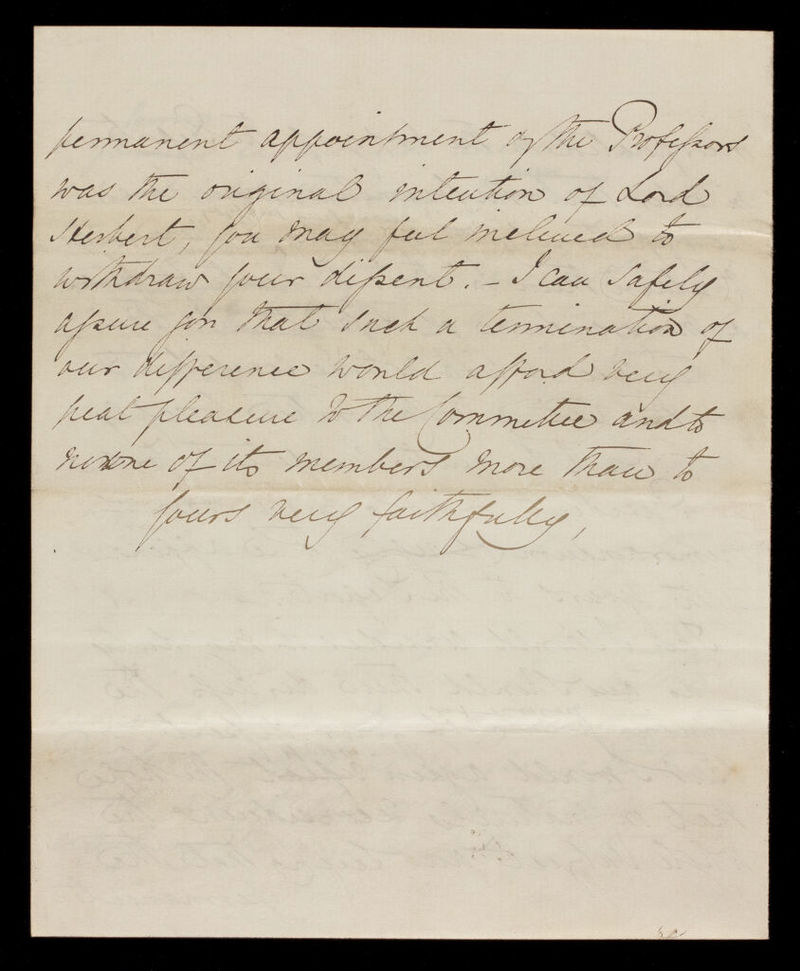 permanent appointment of the Professors
was the original intention of Lord
Herbert, you may feel inclined to
withdraw your dissent. - I can safely
assure you that such a termination of
our difference would afford very
great pleasure to the Committee and to
none of its members more than to
yours very faithfully,